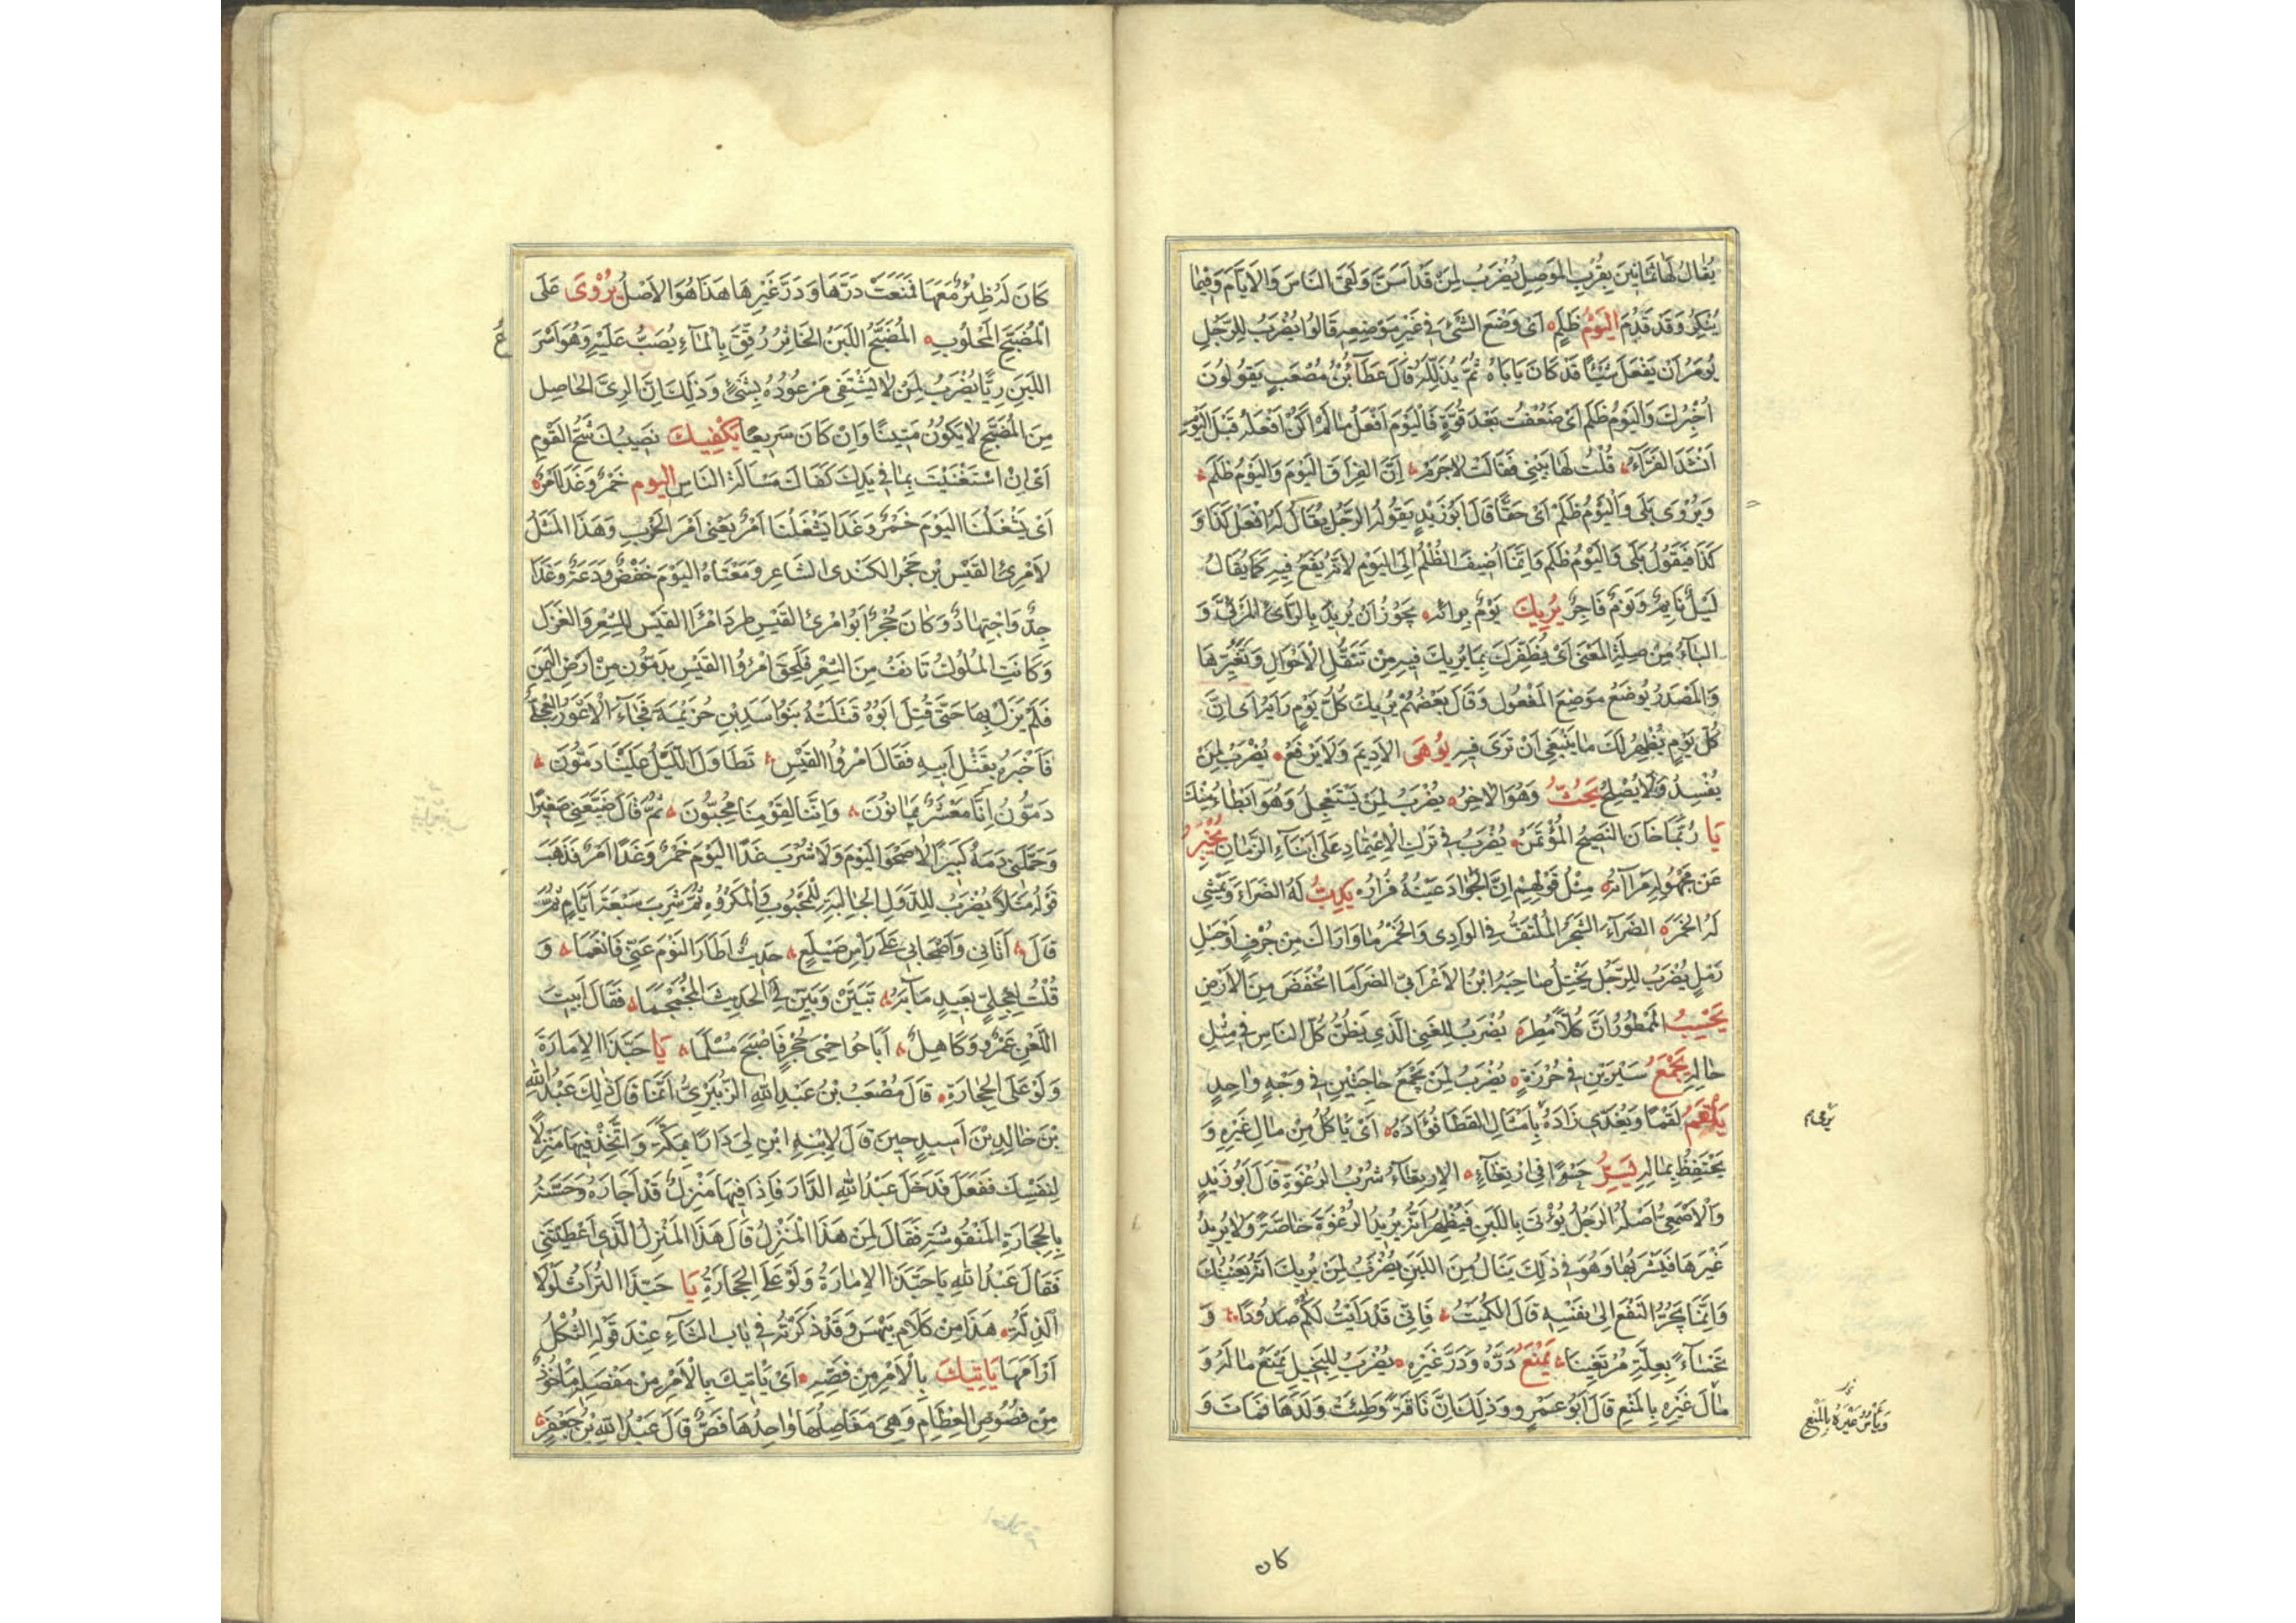 يُقَالُ لَهَا ثَمَانِينَ بِقُرْبِ المَوْصِلِ يُضْرَبُ لِمَنْ قَدْ اَسَنَّ وَلَقِيَ النَاسَ وَالاَيَّامَ وَفِيمَا
يُنْكِرُ وَقَدْ قَدُمَ اليَوْمُ ظَلَمَ اَىْ وَضَعَ الشَّىْءَ فِي غَيْرِ مَوْضِعِهِ قَالُوا يُضْرَبُ لِلرَّجُلِ
يُومَرُ اَنْ يَفْعَلَ شَيْئًا قَدْ كَانَ يَابَاهُ ثُمَّ يَذِلُّ لَهُ قَالَ عَطَآءُ بْنُ مُصْعَبٍ يَقُولُونَ
اُخْبِرُكَ وَاليَوْمُ ظَلَمَ اَىْ ضَعُفْتُ بَعْدَ قُوَّةٍ فَاليَوْمَ اَفْعَلُ مَا لَمْ اَكُنْ اَفْعَلُهُ قَبْلَ اليَوْمِ
اَنْشَدَ الفَرَّآءُ قُلْتُ لَهَا بِينِي فَقَالَتْ لاَجَرَمْ اِنَّ الفِرَاقَ اليَوْمَ وَاليَوْمُ ظَلَمْ
وَيُرْوَى بَلَى وَاليَوْمُ ظَلَمْ اَىْ حَقًّا قَالَ اَبُوزَيْدٍ يَقُولُهُ الرَّجُلُ يُقَالُ لَهُ افْعَلْ كَذَا وَ
كَذَا فَيَقُولُ بَلَى وَاليَوْمُ ظَلَمَ وَاِنَّمَا اُضِيفَ الظُّلْمُ اِلَى اليَوْمِ لاَنَّهُ يَقَعُ فِيهِ كَمَا يُقَالُ
لَيْلٌ نَايِمٌ وَيَوْمٌ فَاجِرٌ يُرِيكَ يَوْمٌ بِرَائِه يَجُوزُ اَنْ يُرِيدَ بِالرَّاىِ المَرْئِيَّ وَ
البَآءُ مِنْ صِلَةِ المَعْنَى اَىْ يُظْفِرُكَ بِمَا يُرِيكَ فِيهِ مِنْ تَنَقُّلِ الاَحْوَالِ وَتَغَيُّرِهَا
وَالمَصْدَرُ يُوضَعُ مَوْضِعَ المَفْعُولِ وَقَالَ بَعْضُهُمْ يُرِيكَ كُلُّ يَوْمٍ رَايَهُ اَىْ اِنَّ
كُلَّ يَوْمٍ يُظْهِرُ لَكَ مَا يَنْبَغِي اَنْ تَرَى فِيهِ يُوهَى الاَدِيمَ وَلاَ يَرْقَعُ يُضْرَبُ لِمَنْ
يُفْسِدُ وَلاَ يُصْلِحُ يَحُثُّ وَهُوَ الاٰخِرُ يُضْرَبُ لِمَنْ يَسْتَعْجِلُ وَهُوَ اَبْطَاُ مِنْكَ
يَا رُبَّمَا خَانَ النَصِيحُ المُؤْتَمَنُ يُضْرَبُ فِي تَرْكِ الاِعْتِمَادِ عَلَى اَبْنَآءِ الزَمَانِ يُخْبِرُ
عَنْ مَجْهُولِهِ مَرْاٰتُهُ مِثْلُ قَوْلِهِمْ اِنَّ الجَوَادَ عَيْنُهُ فُرَارُهُ يَدِبُّ لَهُ الضَرَاءَ وَيَمْشِي
لَهُ الخَمَرَ الضَرَآءُ الشَجَرُ المُلْتَفُّ فِي الوَادِى وَالخَمَرُ مَا وَارَاكَ مِنْ جُرُفٍ اَوْ حَبْلِ
رَمْلٍ يُضْرَبُ لِلرَّجُلِ يَخْتِلُ صَاحِبَهُ ابْنُ الاَعْرَابِيِّ الضَرَا مَا انْخَفَضَ مِنَ الاَرْضِ
يَحْسِبُ المَمْطُورُ اَنَّ كُلاًّ مُطِرَ يُضْرَبُ لِلْغَنِيِّ الَّذِي يَظُنُّ كُلَّ النَاسِ فِي مِثْلِ
حَالِهِ يَجْمَعُ سَيْرَيْنِ فِي خُرْزَةٍ يُضْرَبُ لِمَنْ يَجْمَعُ حَاجَتَيْنِ فِي وَجْهٍ وَاحِدٍ
يَلْقَمُ لَقْمًا وَيُفَدِّى زَادَهُ يَرْمِي بِاَمْثَالِ القَطَا فُؤَادَهُ اَىْ يَاكُلُ مِنْ مَالِ غَيْرِهِ وَ
يَحْتَفِظُ بِمَالِهِ يُسِرُّ حَسْوًا فِي ارْتِغَآءٍ الاِرْتِغَآءُ شُرْبُ الرُغْوَةِ قَالَ اَبُو زَيْدٍ
وَالاَصْمَعِيُّ اَصْلُهُ الرَجُلُ يُؤْتَى بِاللَبَنِ فَيُظْهِرُ اَنَّهُ يُرِيدُ الرُغْوَةَ خَاصَّةً وَلاَ يُرِيدُ
غَيْرَهَا فَيَشْرَبُهَا وَهُوَ فِي ذٰلِكَ يَنَالُ مِنَ اللَبَنِ يُضْرَبُ لِمَنْ يُرِيكَ اَنَّهُ يُعِينُكَ
وَاِنَّمَا يَجُرُّ النَفْعَ اِلَى نَفْسِهِ قَالَ الكُمَيْتُ فَاِنِّي قَدْ رَاَيْتُ لَكُمْ صُدُودًا وَ
تَحْسَآءً بِعِلَّةِ مُرْتَغِينَا يَمْنَعُ دَرَّهُ وَدَرَّ غَيْرِهِ يُضْرَبُ لِلْبَخِيلِ يَمْنَعُ مَالَهُ وَ
مَالَ غَيْرِهِ بِالمَنْعِ قَالَ اَبُو عَمْرٍو وَذٰلِكَ اَنَّ نَاقَةً وَطِئَتْ وَلَدَهَا فَمَاتَ وَ
يَرْمِي
وَيَاْمُرُ غَيْرَهُ بِالمَنْعِ
كان
كَانَ لَهُ ظِئْرٌ مَعَهَا فَمَنَعَتْ دَرَّهَا وَدَرَّ غَيْرِهَا هَذَا هُوَ الاَصْلُ يُرْوَى عَلَى
المُضَيَّحِ المَحْلُوبِ المُضَيَّحُ اللَبَنُ الخَاثِرُ رُقِّقَ بِالمَآءِ يُصَبُّ عَلَيْهِ وَهُوَ اَسْرَ
ع
اللَبَنِ رِيًّا يُضْرَبُ لِمَنْ لاَ يَشْتَفِى مَوْعُودُهُ بِشَىْءٍ وَذٰلِكَ اَنَّ الرِىَّ الحَاصِل
مِنَ المُضَيَّحِ لاَ يَكُونُ مَتِينًا وَاِنْ كَانَ سَرِيعًا يَكْفِيكَ نَصِيبُكَ شُحَّ القَوْمِ
اَىْ اِنِ اسْتَغْنَيْتَ بِمَا فِي يَدِكَ كَفَاكَ مَسْاَلَةَ النَاسِ اليوم خَمْرٌ وَغَدًا اَمْرٌ
اَىْ يَشْغَلُنَا اليَوْمَ خَمْرٌ وَغَدًا يَشْغَلُنَا اَمْرٌ يَعْنِي اَمْرَ الحَرْبِ وَهَذَا المَثَلُ
لاِمْرِئِ القَيْسِ بْنِ حُجْرٍ الكِنْدِى الشَاعِرِ وَمَعْنَاهُ اليَوْمَ خَفْضٌ وَدَعَةٌ وَغَدًا
جِدٌّ وَاجْتِهَادٌ وَكَانَ حُجْرٌ اَبُو امْرِئِ القَيْسِ طَرَدَ امْرَاَ القَيْسِ لِلشِعْرِ وَالغَزَلِ
وَكَانَتِ المُلُوكُ تَانَفُ مِنَ الشِعْرِ فَلَحِقَ امْرُؤُ القَيْسِ بِدَمُّونَ مِنْ اَرْضِ اليَمَنِ
فَلَمْ يَزَلْ بِهَا حَتَّى قُتِلَ اَبُوهُ قَتَلَتْهُ بَنُو اَسَدِ بْنِ خُزَيْمَةَ فَجَآءَهُ الاَعْوَرُ العِجْلِيُّ
فَاَخْبَرَهُ بِقَتْلِ اَبِيهِ فَقَالَ امْرُؤُ القَيْسِ تَطَاوَلَ اللَيْلُ عَلَيْنَا دَمُّونَ
دَمُّونَ اِنَّا مَعْشَرٌ يَمَانُونَ وَاِنَّنَا لِقَوْمِنَا مُحِبُّونَ ثُمَّ قَالَ ضَيَّعَنِي صَغِيرًا
وَحَمَّلَنِي دَمَهُ كَبِيرًا لاَ صَحْوَ اليَوْمَ وَلاَ شُرْبَ غَدًا اليَوْمَ خَمْرٌ وَغَدًا اَمْرٌ فَذَهَبَ
قَوْلُهُ مَثَلاً يُضْرَبُ لِلدُّوَلِ الجَالِبَةِ لِلْمَحْبُوبِ وَالمَكْرُوهِ ثُمَّ شَرِبَ سَبْعَةَ اَيَّامٍ ثُمَّ
قَالَ اَتَانِي وَاَصْحَابِي عَلَى رَاْسِ صَيْلَعٍ حَدِيثٌ اَطَارَ النَوْمَ عَنِّي فَاَنْعَمَا وَ
قُلْتُ لِعِجْلِيٍّ بَعِيدٍ مَآبُهُ تَبَيَّنْ وَبَيِّنْ لِي الحَدِيثَ المُجَمْجَمَا فَقَالَ اَبَيْتَ
اللَعْنَ عَمْرٌو وَكَاهِلٌ اَبَاحُوا حِمَى حُجْرٍ فَاَصْبَحَ مُسْلَمَا يَا حَبَّذَا الاِمَارَةُ
وَلَوْ عَلَى الحِجَارَةِ قَالَ مُصْعَبُ بْنُ عَبْدِ اللهِ الزُبَيْرِىُّ اِنَّمَا قَالَ ذٰلِكَ عَبْدُ اللهِ
بْنُ خَالِدِ بْنِ اَسِيدٍ حِينَ قَالَ لاِبْنِهِ ابْنِ لِي دَارًا بِمَكَّةَ وَاتَّخِذْ فِيهَا مَنْزِلاً
لِنَفْسِكَ فَفَعَلَ فَدَخَلَ عَبْدُ اللهِ الدَّارَ فَاِذَا فِيهَا مَنْزِلٌ قَدْ اَجَادَهُ وَحَسَّنَهُ
بِالحِجَارَةِ المَنْقُوشَةِ فَقَالَ لِمَنْ هَذَا المَنْزِلُ قَالَ هَذَا المَنْزِلُ الَّذِي اَعْطَيْتَنِي
فَقَالَ عَبْدُ اللهِ يَا حَبَّذَا الاِمَارَةُ وَلَوْ عَلَى الحِجَارَةِ يَا حَبَّذَا التُرَاثُ لَوْلاَ
الذِلَّةُ هَذَا مِنْ كَلاَمِ بَيْهَسَ وَقَدْ ذَكَرْتُهُ فِي بَابِ الثَآءِ عِنْدَ قَوْلِهِ الثُكْلُ
اَرْاَمَهَا يَاتِيكَ بِالاَمْرِ مِنْ فَصِّهِ اَىْ يَاْتِيكَ بِالاَمْرِ مِنْ مَفْصَلِهِ مَاْخُوذٌ
مِنْ فُصُوصِ العِظَامِ وَهِيَ مَفَاصِلُهَا وَاحِدُهَا فَصٌّ قَالَ عَبْدُ اللهِ بْنُ جَعْفَرٍ